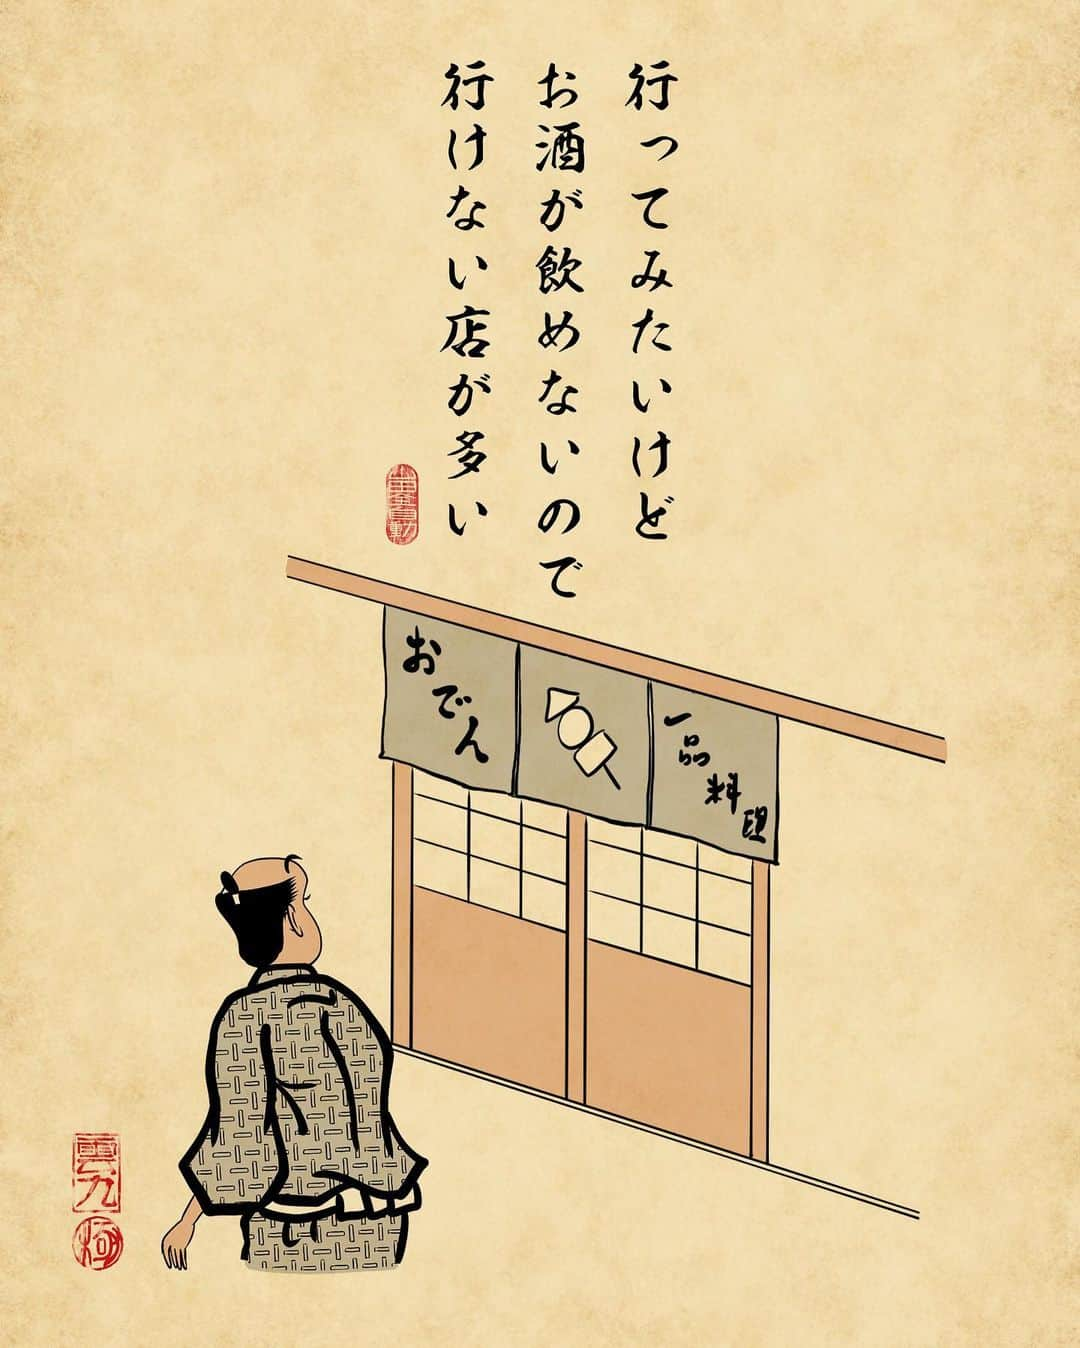 行ってみたいけど
お酒が飲めないので
行けない店が多い
おでん
一品料理